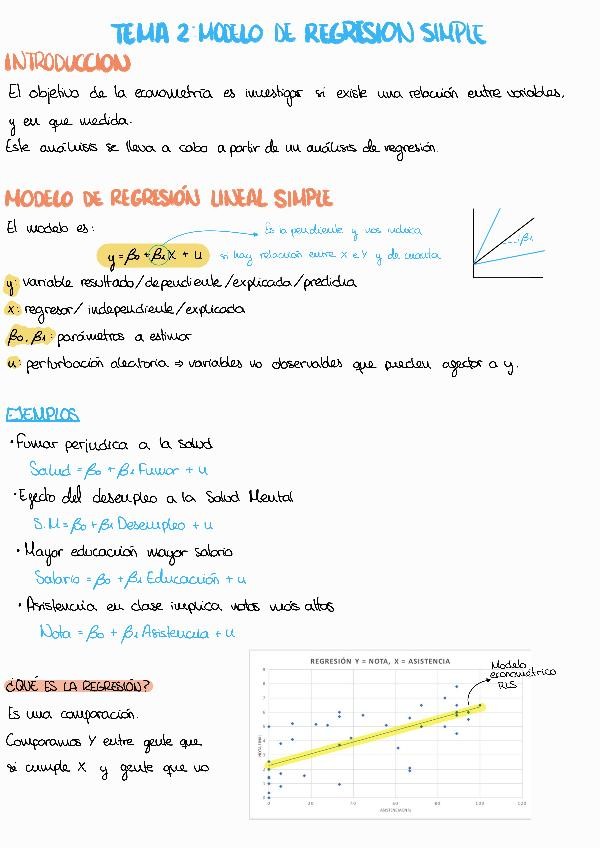 TEMA 2: MODELO DE REGRESION SIMPLE
INTRODUCCION
El objetivo de la econometría es investigar si existe una relación entre variables,
y en que medida.
Este análisis se lleva a cabo a partir de un análisis de regresión.
MODELO DE REGRESIÓN LINEAL SIMPLE
El modelo es:
Es la pendiente y nos indica
y = β0 + β1 X + u
si hay relación entre X e Y y de cuanta
β1
y: variable resultado/dependiente/explicada/predicha
x: regresor/independiente/explicada
β0, β1: parámetros a estimar
u: perturbación aleatoria ⇒ variables no observables que pueden afectar a y.
EJEMPLOS
· Fumar perjudica a la salud
Salud = β0 + β1 Fumar + u
· Efecto del desempleo a la Salud Mental
S.M = β0 + β1 Desempleo + u
· Mayor educación mayor salario
Salario = β0 + β1 Educación + u
· Asistencia en clase implica notas más altas
Nota = β0 + β1 Asistencia + u
¿QUÉ ES LA REGRESIÓN?
Es una comparación.
Comparamos Y entre gente que
si cumple X y gente que no
REGRESIÓN Y = NOTA, X = ASISTENCIA
Modelo
econometrico
RLS
9
8
7
6
5
4
3
2
1
0
0 20 40 60 80 100 120